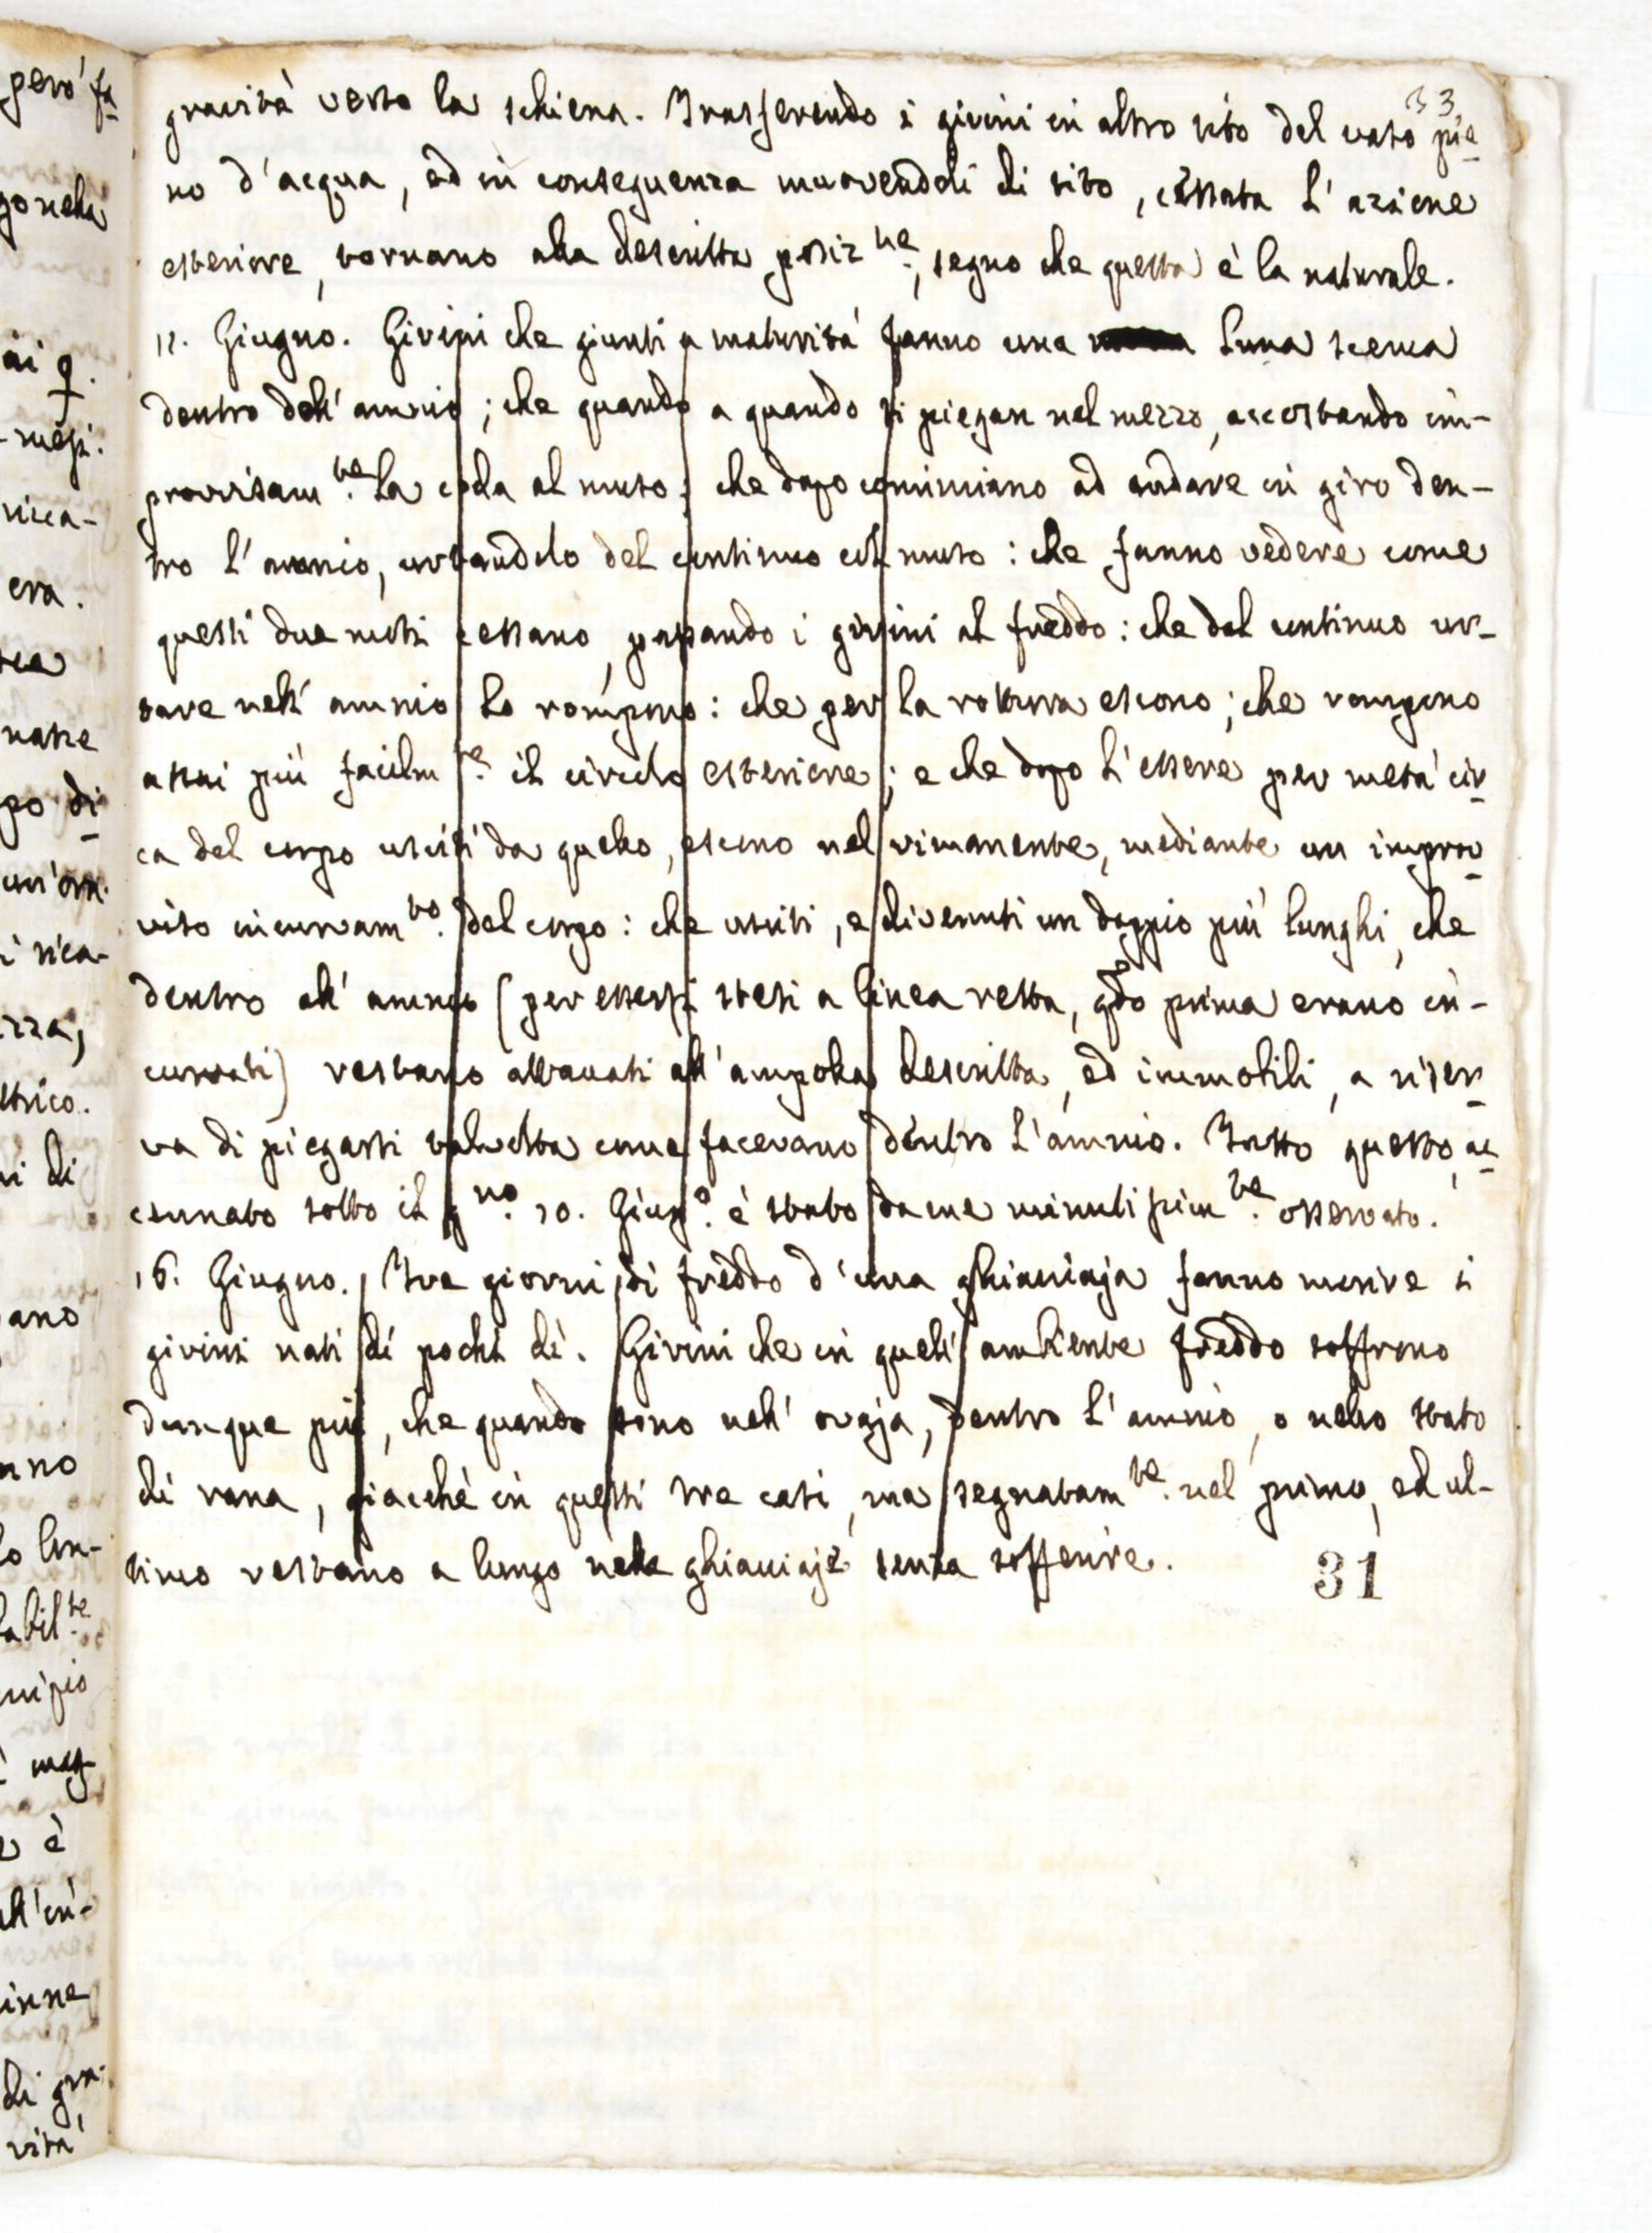 33
gravità verso la schiena. Trasferendo i girini in altro sito del vaso pie-
no d'acqua, ed in conseguenza muovendoli di sito, cessata l'azione
esteriore, tornano alla descritta posiz.ne, segno che questa è la naturale.
12. Giugno. Girini che giunti a maturità fanno una luna scema
dentro dell'amnio; che quando a quando si piegan nel mezzo, accostando im-
provvisam.te la coda al muso; che dopo cominciano ad andare in giro den-
tro l'amnio, urtandolo del continuo col muso: che fanno vedere come
questi due moti cessano, passando i girini al freddo: che dal continuo ur-
tare nell'amnio lo rompono: che per la rottura escono; che rompono
assai più facilm.te il circolo esteriore; e che dopo l'essere per metà cir-
ca del corpo usciti da quello, escono nel rimanente, mediante un improv-
viso incurvam.to del corpo: che usciti, e divenuti un doppio più lunghi, che
dentro all'amnio (per essersi stesi a linea retta, qdo prima erano in-
curvati) restano attaccati all'ampolla descritta, ed immobili, a riser-
va di piegarsi talvolta come facevano dentro l'amnio. Tutto questo, ac-
cennato sotto il g.no 10. Giug.o è stato da me minutissim.te osservato.
16. Giugno. Tre giorni di freddo d'una ghiacciaja fanno morire i
girini nati di pochi dì. Girini che in quell'ambiente freddo soffrono
dunque più, che quando sono nell'ovaja, dentro l'amnio, o nello stato
di rana, giacché in questi tre casi, ma segnatam.te nel primo, ed ul-
timo restano a lungo nelle ghiacciaje senza soffrire.
31